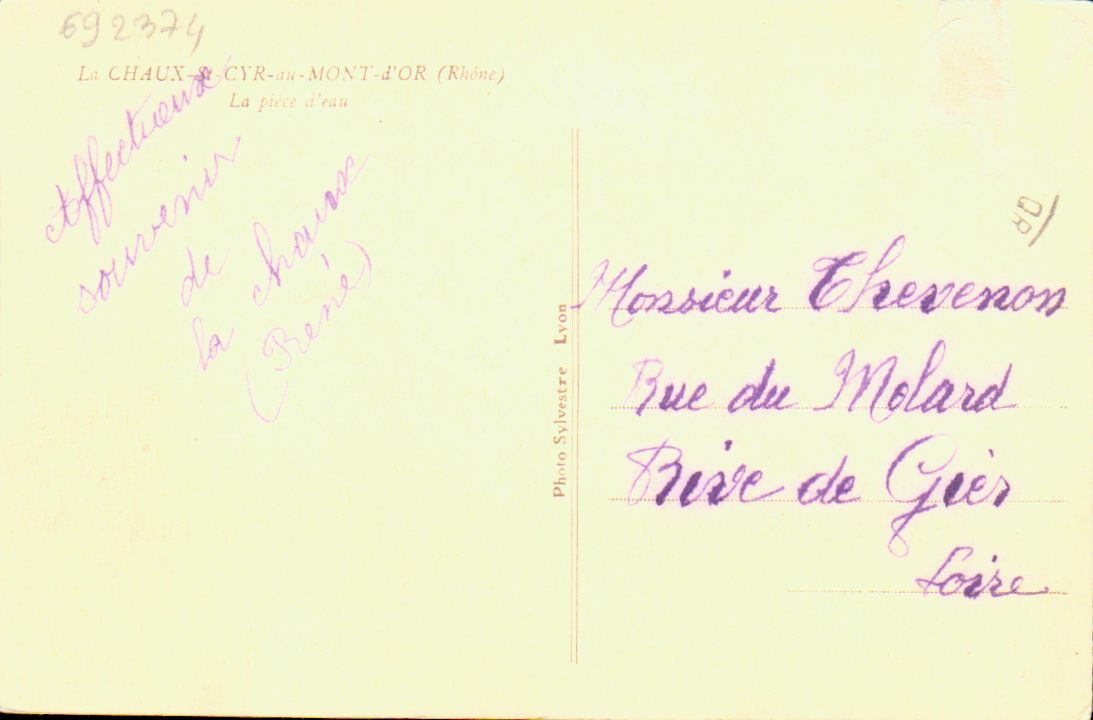 692374
La CHAUX-St-CYR-au-MONT-d'OR (Rhône)
La pièce d'eau
Affectueux
souvenir
de
la chaux
(René)
Photo Sylvestre Lyon
GR
Monsieur Thevenon
Rue du Molard
Rive de Gièr
Loire